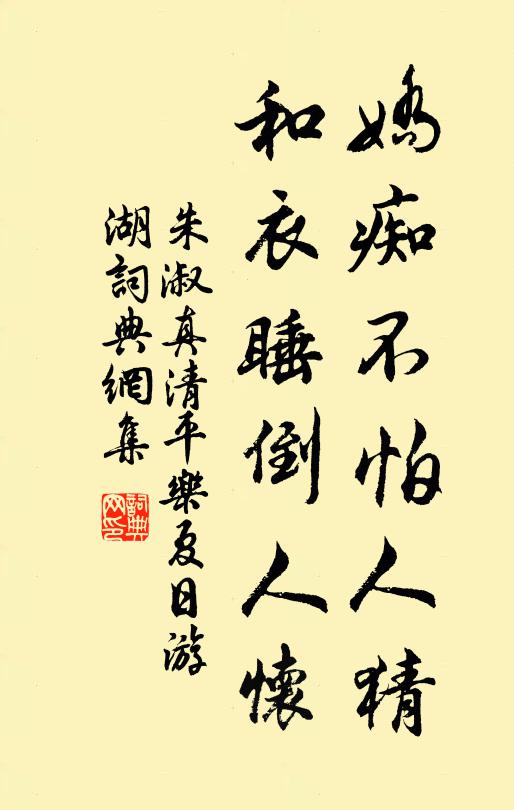 嬌痴不怕人猜
和衣睡倒人懷
朱淑真清平樂夏日游
湖詞典網集
詞典
网印